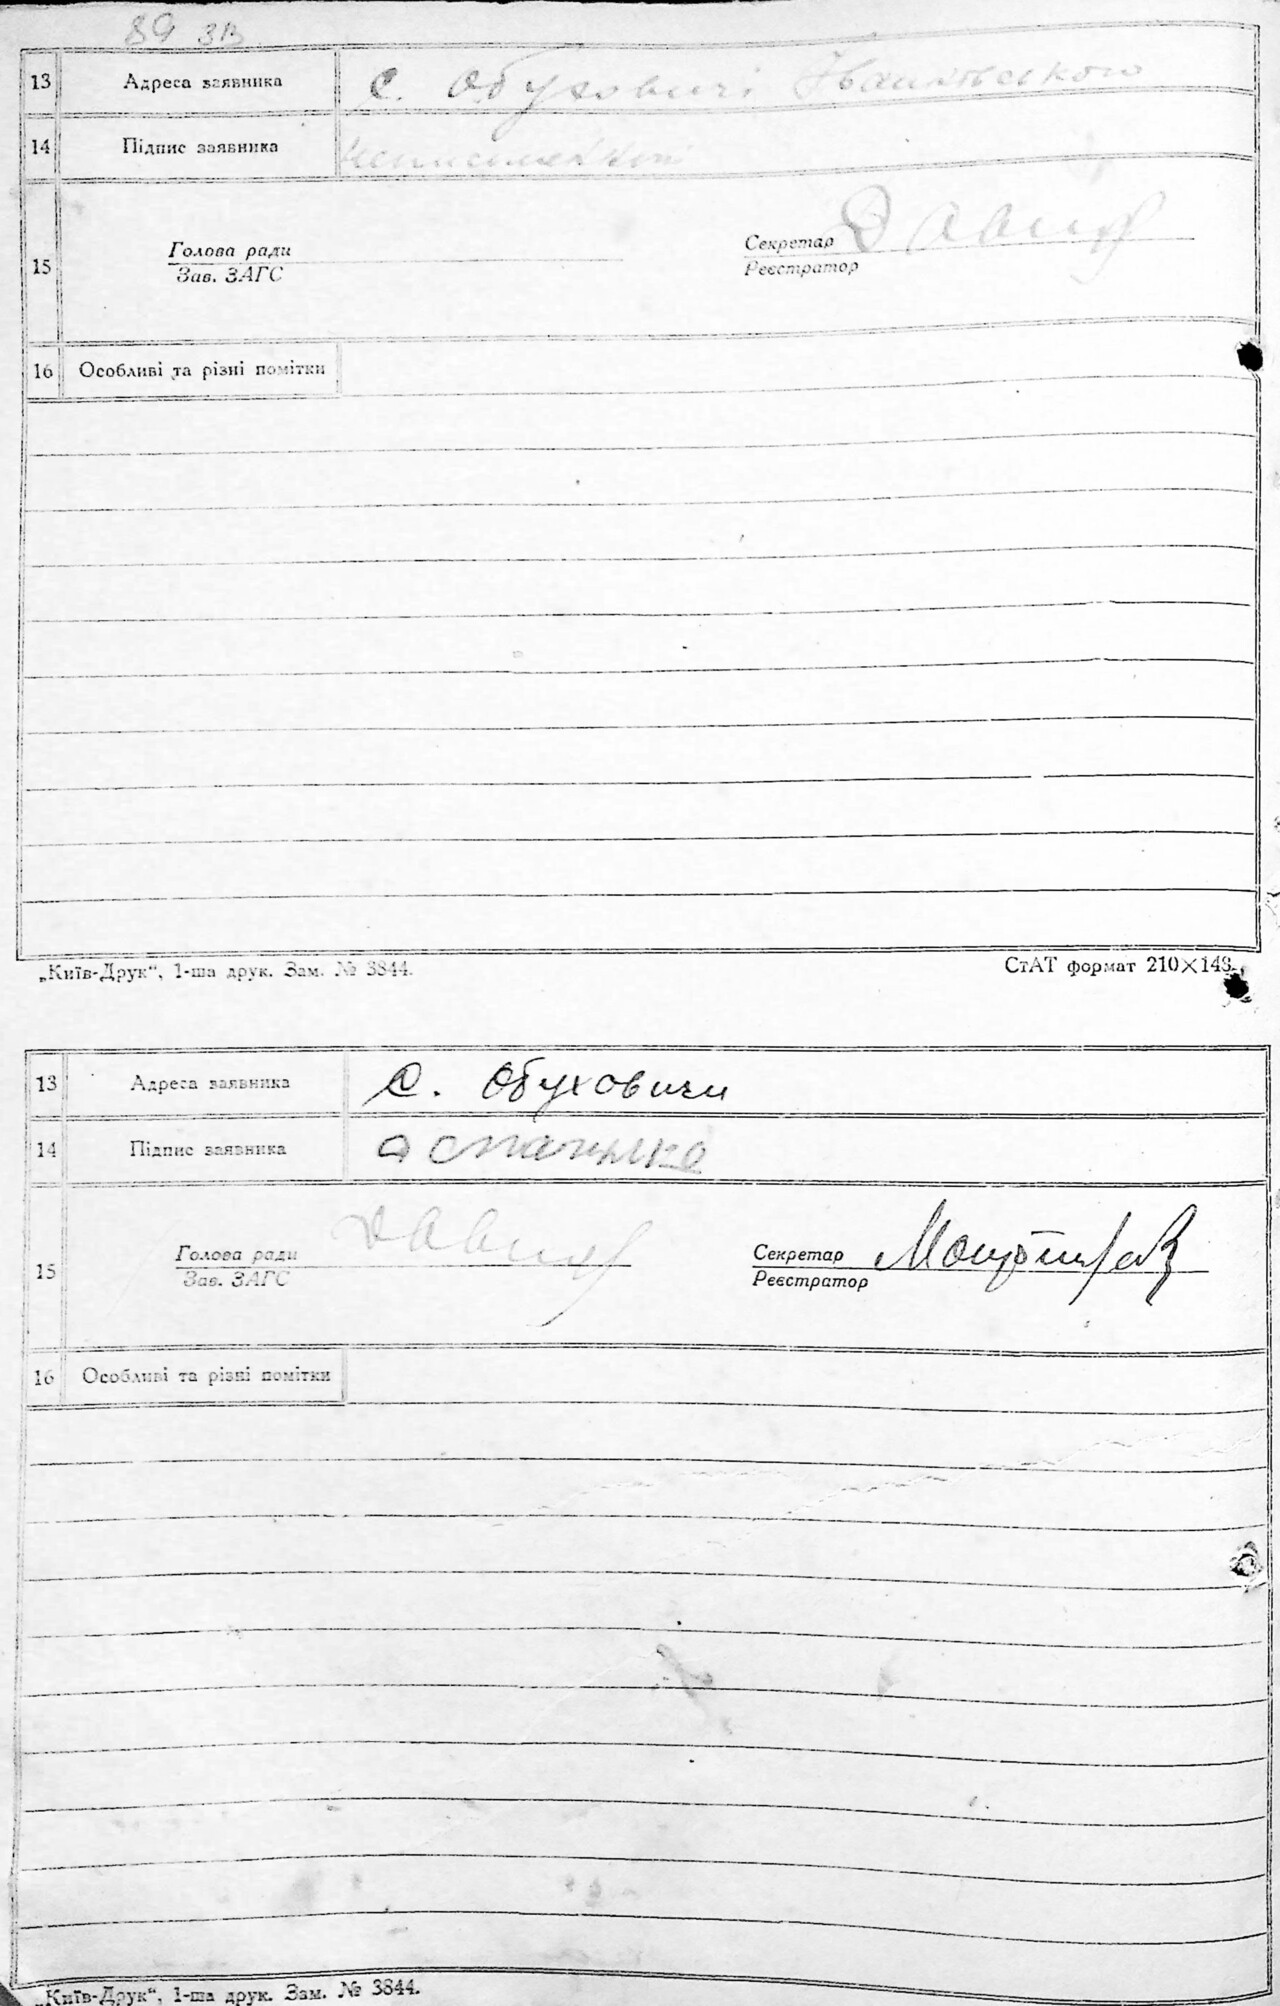 89 зв
13 Адреса заявника с. Обуховичі Іванківського
14 Підпис заявника неписьменний
15 Голова ради Секретар Давид
Зав. ЗАГС Реєстратор
16 Особливі та різні помітки
„Київ-Друк“, 1-ша друк. Зам. № 3844. СтАТ формат 210×148.
13 Адреса заявника с. Обуховичи
14 Підпис заявника
15 Голова ради Давид Секретар
Зав. ЗАГС Реєстратор
16 Особливі та різні помітки
„Київ-Друк“, 1-ша друк. Зам. № 3844.